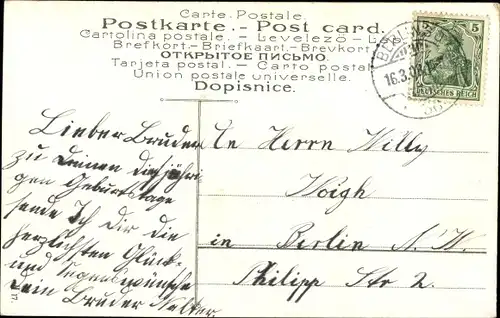 Carte Postale.
Postkarte. - Post card.
Cartolina postale. - Levelező - L
Brefkort. - Briefkaart. - Brevkort
ОТКРЫТОЕ ПИСЬМО.
Tarjeta postal. - Carto postal
Union postale universelle.
Dopisnice.
5
DEUTSCHES REICH
BERLIN
16.3.0
Lieber Bruder
zu Deinen diesjähri
gen Geburtstage
sende Ich dir die
herzlichsten Glück-
und Segenswünsche
Dein Bruder Walter.
Herrn Willy
Voigh
in Berlin N. W.
Philipp Str 2.